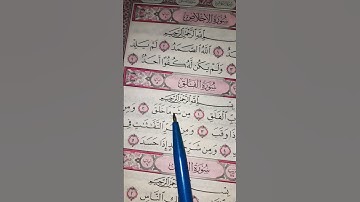 سُورَةُ الإِخْلَاصِ
بِسْمِ اللَّهِ الرَّحْمَٰنِ الرَّحِيمِ
اللَّهُ الصَّمَدُ ۝ لَمْ يَلِدْ
وَلَمْ يَكُن لَّهُ كُفُوًا أَحَدٌ
سُورَةُ الْفَلَقِ
بِسْمِ اللَّهِ الرَّحْمَٰنِ الرَّحِيمِ
الْفَلَقِ ۝ مِن شَرِّ مَا خَلَقَ ۝ وَمِن
إِذَا وَقَبَ ۝ وَمِن شَرِّ النَّفَّاثَاتِ فِي
وَمِن شَرِّ حَاسِدٍ إِذَا حَسَدَ
سُورَةُ
بِسْمِ اللَّهِ الرَّحْمَٰنِ الرَّحِيمِ
النَّاسِ